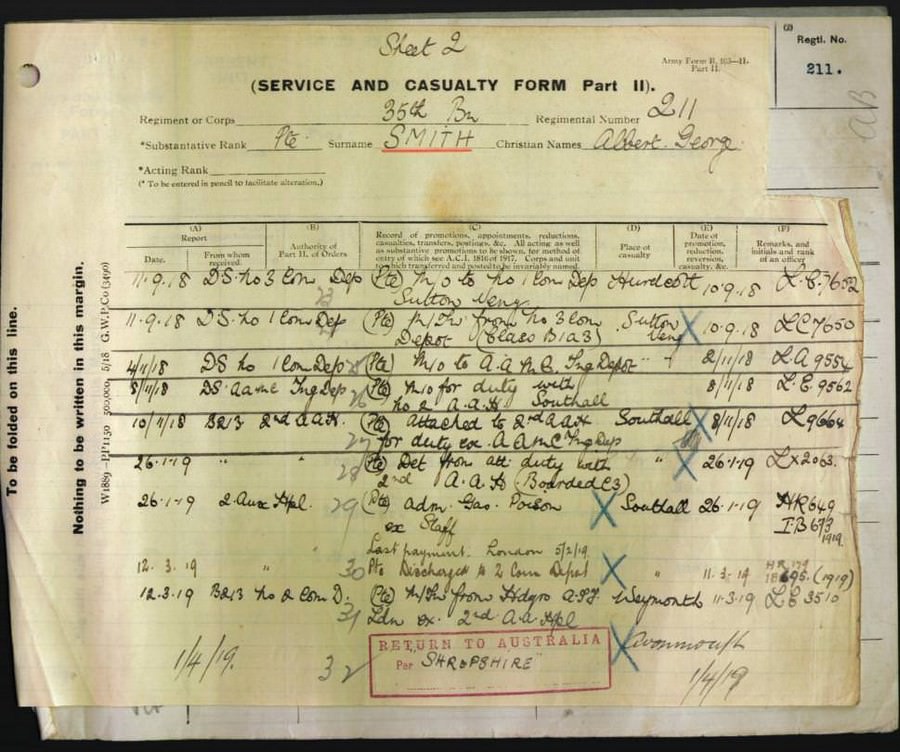 Sheet 2
(3)
Regtl. No.
211.
Army Form B. 103—II.
Part II.
(SERVICE AND CASUALTY FORM Part II).
Regiment or Corps 35th Bn Regimental Number 211
*Substantive Rank Pte Surname SMITH Christian Names Albert George
*Acting Rank
(* To be entered in pencil to facilitate alteration.)
(A) (B) (C) (D) (E) (F)
Report
Date. From whom received.
Authority of Part II. of Orders
Record of promotions, appointments, reductions, casualties, transfers, postings, &c. All acting as well as substantive promotions to be shown, for method of entry of which see A.C.I. 1816 of 1917. Corps and unit to which transferred and posted to be invariably named.
Place of casualty
Date of promotion, reduction, reversion, casualty, &c.
Remarks, and initials and rank of an officer
11.9.18 DS. No 3 Com Dep (Pte) M/O to No 1 Com Dep Hurdcott 10.9.18 L.E. 7652
23 Sutton Veny
11.9.18 DS. No 1 Com Dep (Pte) M/In from No 3 Com Sutton Veny X 10.9.18 LC 7650
Depot (Class B1a3)
4/11/18 DS No 1 Com Dep (Pte) M/O to A.A.M.C. Tng Depot " 2/11/18 L.A 9554
8/11/18 DS. AAMC Tng Dep (Pte) M/O for duty with 8/11/18 L.E. 9562
26 No 2 A.A.H. Southall
10/11/18 B213 2nd AAH. (Pte) attached to 2nd AAH Southall X 8/11/18 L9664
27 for duty ex. AAMC Tng Dep
26.1.19 " " (Pte) Det from att duty with " X 26.1.19 LX 2063.
28 2nd A.A.H (Boarded C3)
26.1.19 2 Aux Hpl. 29 (Pte) adm. Gas. Poison X Southall 26.1.19 HR 649
ex Staff IB 673
1919.
Last payment. London 5/2/19.
12.3.19 " 30 Pte Discharged to 2 Com Depot X " 11.3.19 (1919)
12.3.19 B213 No 2 Com D. (Pte) M/In from Hdqrs A.I.F. Weymouth 11.3.19 LE 3510
31 Ldn ex. 2nd A.A Hpl
RETURN TO AUSTRALIA X Avonmouth
1/4/19. 32 Per "SHROPSHIRE" 1/4/19
To be folded on this line.
Nothing to be written in this margin.